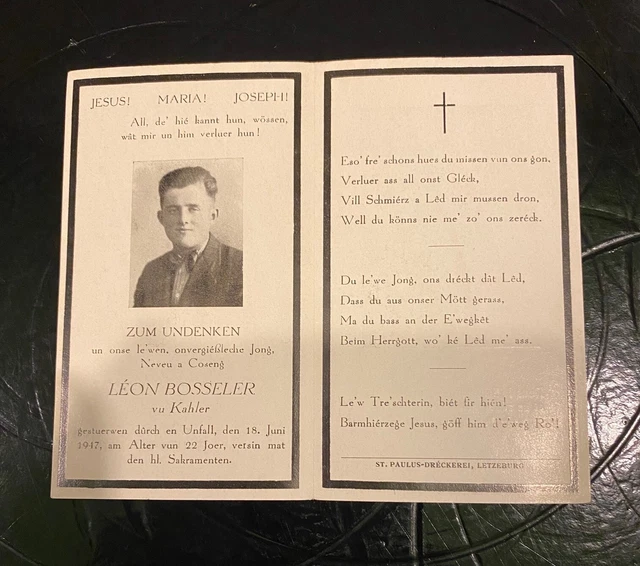 JESUS! MARIA! JOSEPH!
All, de' hié kannt hun, wössen,
wât mir un him verluer hun!
ZUM UNDENKEN
un onse le'wen, onvergiéßleche Jong,
Neveu a Coseng
LÉON BOSSELER
vu Kahler
gestuerwen dûrch en Unfall, den 18. Juni
1947, am Alter vun 22 Joer, versin mat
den hl. Sakramenten.
Eso' fre' schons hues du missen vun ons gon,
Verluer ass all onst Gléck,
Vill Schmiérz a Lêd mir mussen dron,
Well du könns nie me' zo' ons zeréck.
Du le'we Jong, ons dréckt dât Lêd,
Dass du aus onser Mött gerass,
Ma du bass an der E'wegkêt
Beim Herrgott, wo' ké Lêd me' ass.
Le'w Tre'schterin, biét fir hien!
Barmhiérzege Jesus, göff him d'e'weg Ro'!
ST. PAULUS-DRÉCKEREI, LETZEBURG